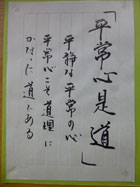 「平常心是道」
平静な平常の心
平常心こそ道理に
かなった道である